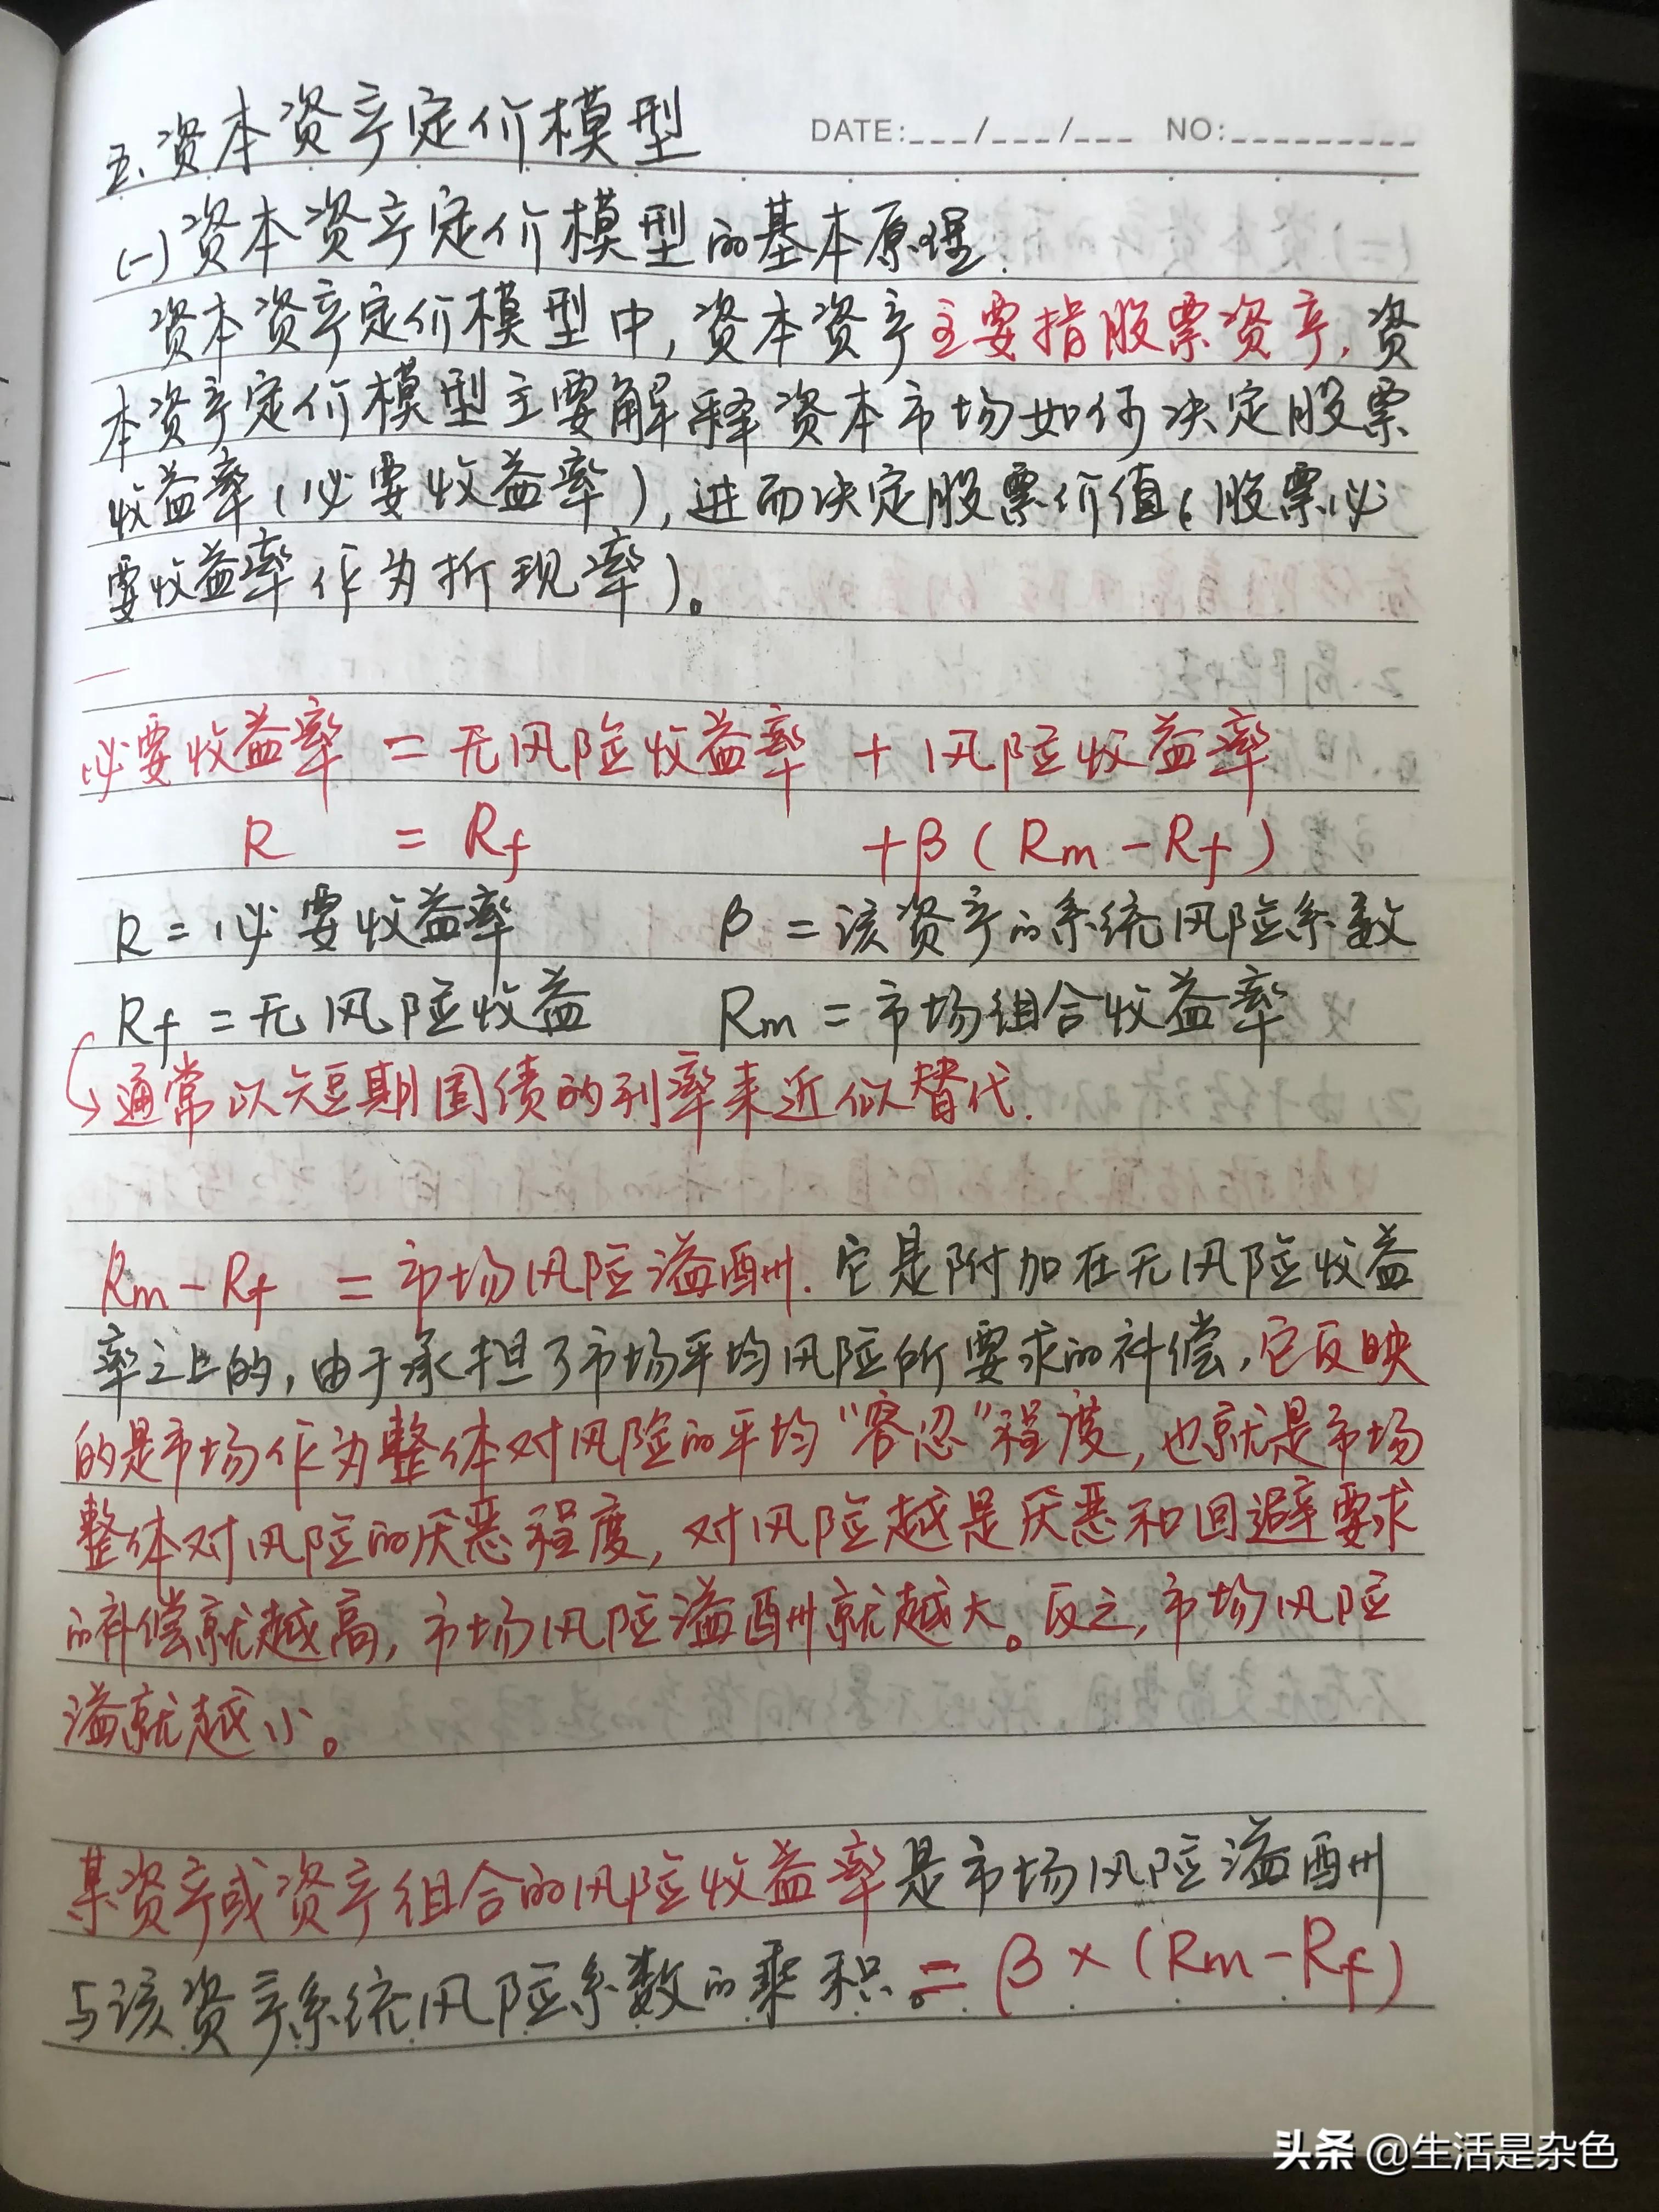 五、资本资产定价模型
DATE:___/___/___ NO:_________
(一)资本资产定价模型的基本原理.
资本资产定价模型中,资本资产主要指股票资产,资
本资产定价模型主要解释资本市场如何决定股票
收益率(必要收益率),进而决定股票价值(股票必
要收益率作为折现率)。
必要收益率 = 无风险收益率 + 风险收益率
R = Rf +β(Rm-Rf)
R=必要收益率 β=该资产的系统风险系数
Rf=无风险收益 Rm=市场组合收益率
通常以短期国债的利率来近似替代.
Rm-Rf =市场风险溢酬.它是附加在无风险收益
率之上的,由于承担了市场平均风险所要求的补偿,它反映
的是市场作为整体对风险的平均“容忍”程度,也就是市场
整体对风险的厌恶程度,对风险越是厌恶和回避要求
的补偿就越高,市场风险溢酬就越大。反之,市场风险
溢就越小。
某资产或资产组合的风险收益率是市场风险溢酬
与该资产系统风险系数的乘积。=β×(Rm-Rf)
头条 @生活是杂色